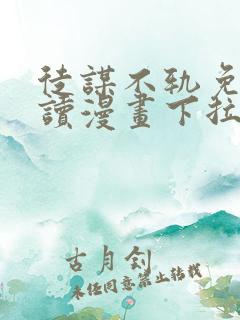 徒謀不軌免
讀漫畫下拉
古月釗
未經同意禁止轉載